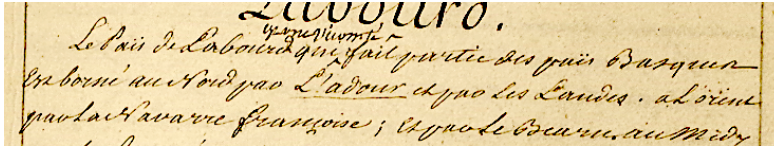 Labourd.
et une Vicomté
Le Païs de Labourd qui fait partie des païs Basques
Est borné au Nord par L'adour et par les Landes. a L'orient
par la Navarre françoise; Et par le Bearn. au Midy